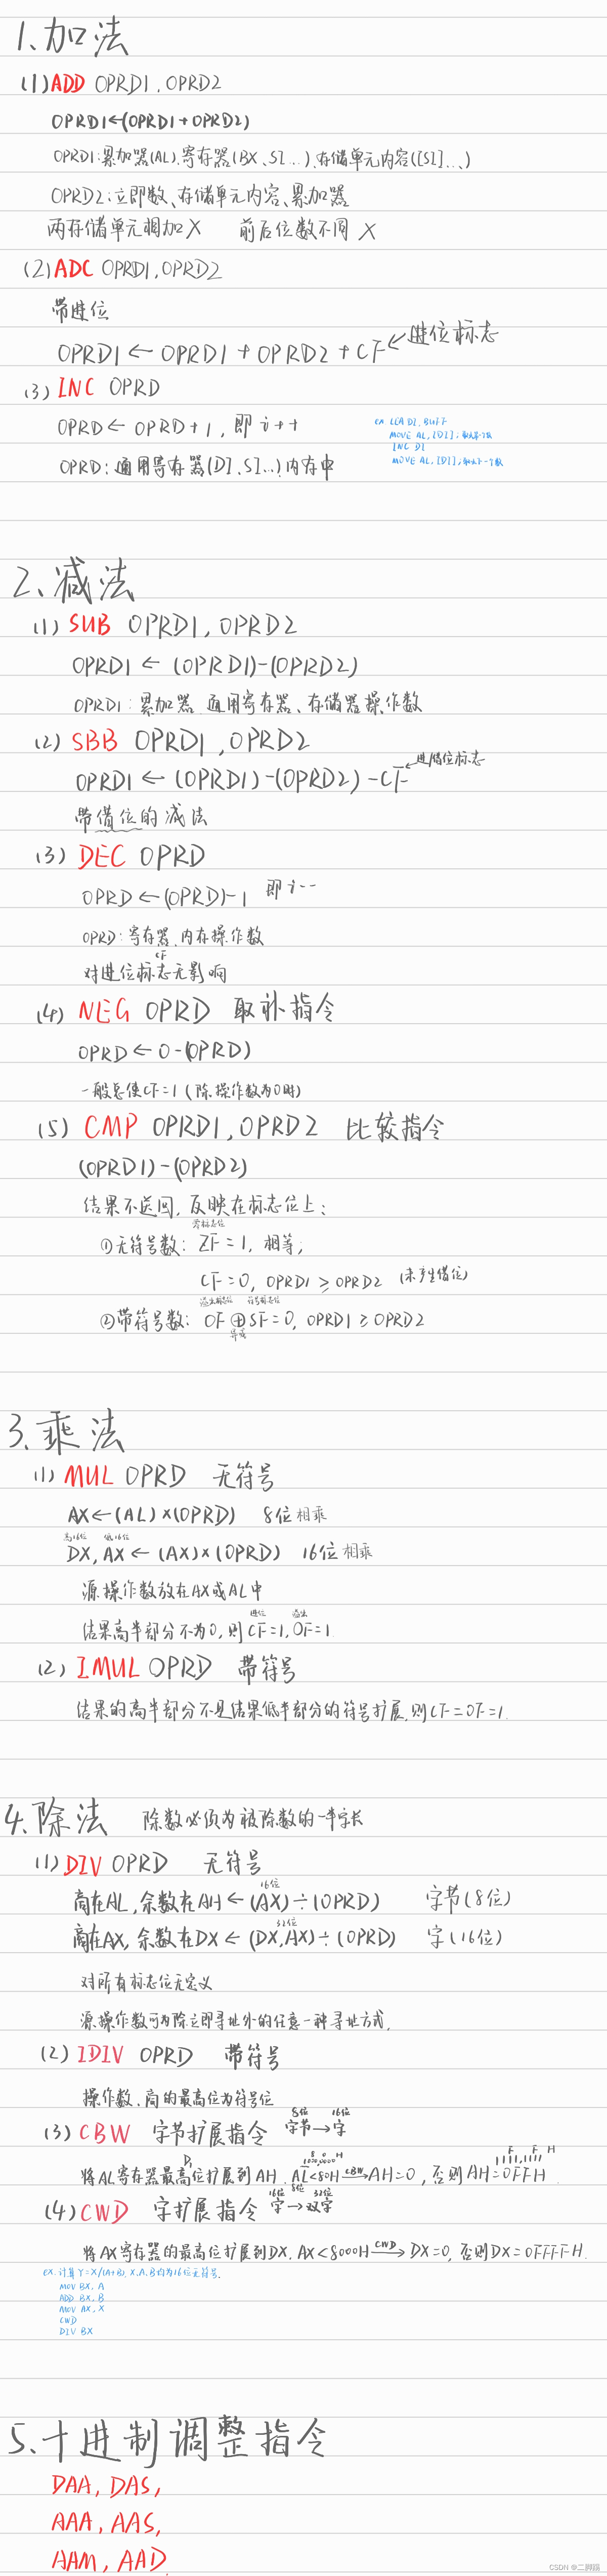 1.加法
(1)ADD OPRD1,OPRD2
OPRD1←(OPRD1+OPRD2)
OPRD1:累加器(AL).寄存器(BX、SI...).存储单元内容([SI]...)
OPRD2:立即数、存储单元内容、累加器
两存储单元相加X 前后位数不同 X
(2)ADC OPRD1,OPRD2
带进位
OPRD1←OPRD1+OPRD2+CF←进位标志
(3)INC OPRD
OPRD←OPRD+1,即i++
ex LEA DI,BUFF
MOVE AL,[DI];取第一个数
INC DI
MOVE AL,[DI];取下一个数
OPRD:通用寄存器(DI、SI...).内存中
2.减法
(1)SUB OPRD1,OPRD2
OPRD1←(OPRD1)-(OPRD2)
OPRD1:累加器.通用寄存器、存储器操作数
(2)SBB OPRD1,OPRD2
OPRD1←(OPRD1)-(OPRD2)-CF←进/借位标志
带借位的减法
(3)DEC OPRD
OPRD←(OPRD)-1 即i--
OPRD:寄存器.内存操作数
CF
对进位标志无影响
(4)NEG OPRD 取补指令
OPRD←0-(OPRD)
一般总使CF=1(除操作数为0时)
(5)CMP OPRD1,OPRD2 比较指令
(OPRD1)-(OPRD2)
结果不送回,反映在标志位上;
零标志位
①无符号数:ZF=1,相等;
CF=0,OPRD1≥OPRD2 (未产生借位)
溢出标志位 符号标志位
②带符号数:OF⊕SF=0,OPRD1≥OPRD2
异或
3.乘法
(1)MUL OPRD 无符号
AX←(AL)×(OPRD) 8位相乘
高16位 低16位
DX,AX←(AX)×(OPRD) 16位相乘
源操作数放在AX或AL中
进位 溢出
结果高半部分不为0,则CF=1,OF=1
(2)IMUL OPRD 带符号
结果的高半部分不是结果低半部分的符号扩展,则CF=OF=1.
4.除法 除数必须为被除数的一半字长
(1)DIV OPRD 无符号
16位
商在AL,余数在AH←(AX)÷(OPRD) 字节(8位)
32位
商在AX,余数在DX←(DX,AX)÷(OPRD) 字(16位)
对所有标志位无定义
源操作数可为除立即寻址外的任意一种寻址方式.
(2)IDIV OPRD 带符号
操作数.商的最高位为符号位
8位 16位
(3)CBW 字节扩展指令 字节→字
D₇ 8 0 H F F H
1000,0000 1111,1111
将AL寄存器最高位扩展到AH.AL<80H CBW→AH=0,否则AH=0FFH.
16位 8位 32位
(4)CWD 字扩展指令 字→双字
将AX寄存器的最高位扩展到DX.AX<8000H CWD→DX=0,否则DX=0FFFFH.
ex.计算Y=X/(A+B),X,A,B均为16位无符号.
MOV BX,A
ADD BX,B
MOV AX,X
CWD
DIV BX
5.十进制调整指令
DAA,DAS,
AAA,AAS,
AAM,AAD
CSDN @二脚踢